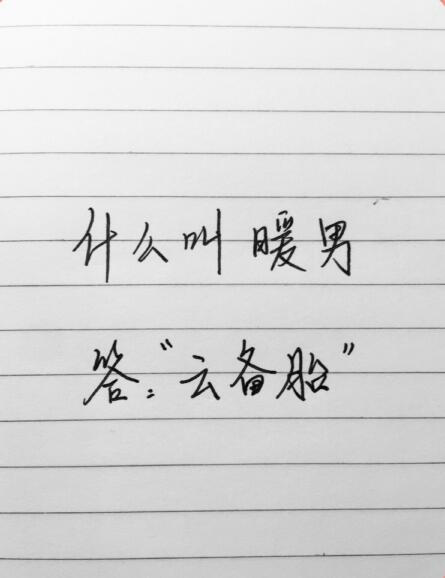 什么叫 暖男
答：“云备胎”